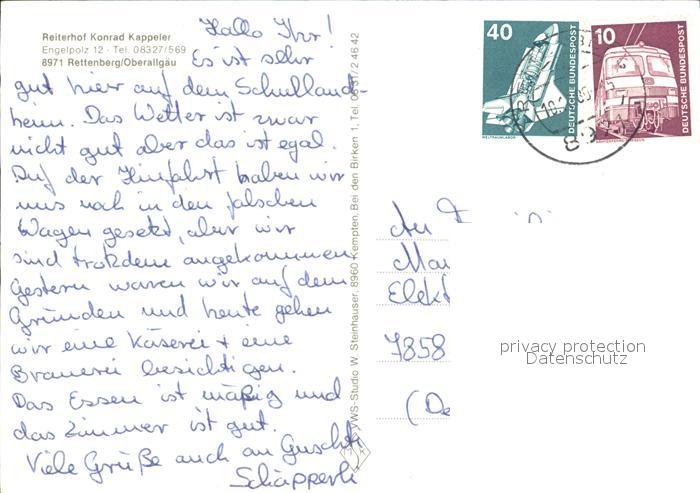 Reiterhof Konrad Kappeler
Engelpolz 12 · Tel. 08327/569
8971 Rettenberg/Oberallgäu
Hallo Ihr!
Es ist sehr
gut hier auf dem Schulland-
heim. Das Wetter ist zwar
nicht gut aber das ist egal.
Auf der Hinfahrt haben wir
uns noch in den falschen
Wagen gesetzt, aber wir
sind trotzdem angekommen
Gestern waren wir auf dem
Gründen und heute gehen
wir eine Käserei + eine
Brauerei besichtigen.
Das Essen ist mäßig und
das Zimmer ist gut.
Viele Grüße auch an Guschti
Schäpperli
VWS-Studio W. Steinhauser, 8960 Kempten, Bei den Birken 1, Tel. 08 31/2 46 42
40
DEUTSCHE BUNDESPOST
WELTRAUMLABOR
10
DEUTSCHE BUNDESPOST
An
Mar
Elekt
7858
(De
privacy protection
Datenschutz